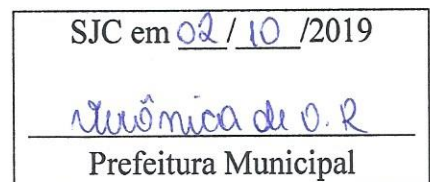 SJC em 02/10/2019
Verônica de O. R
Prefeitura Municipal